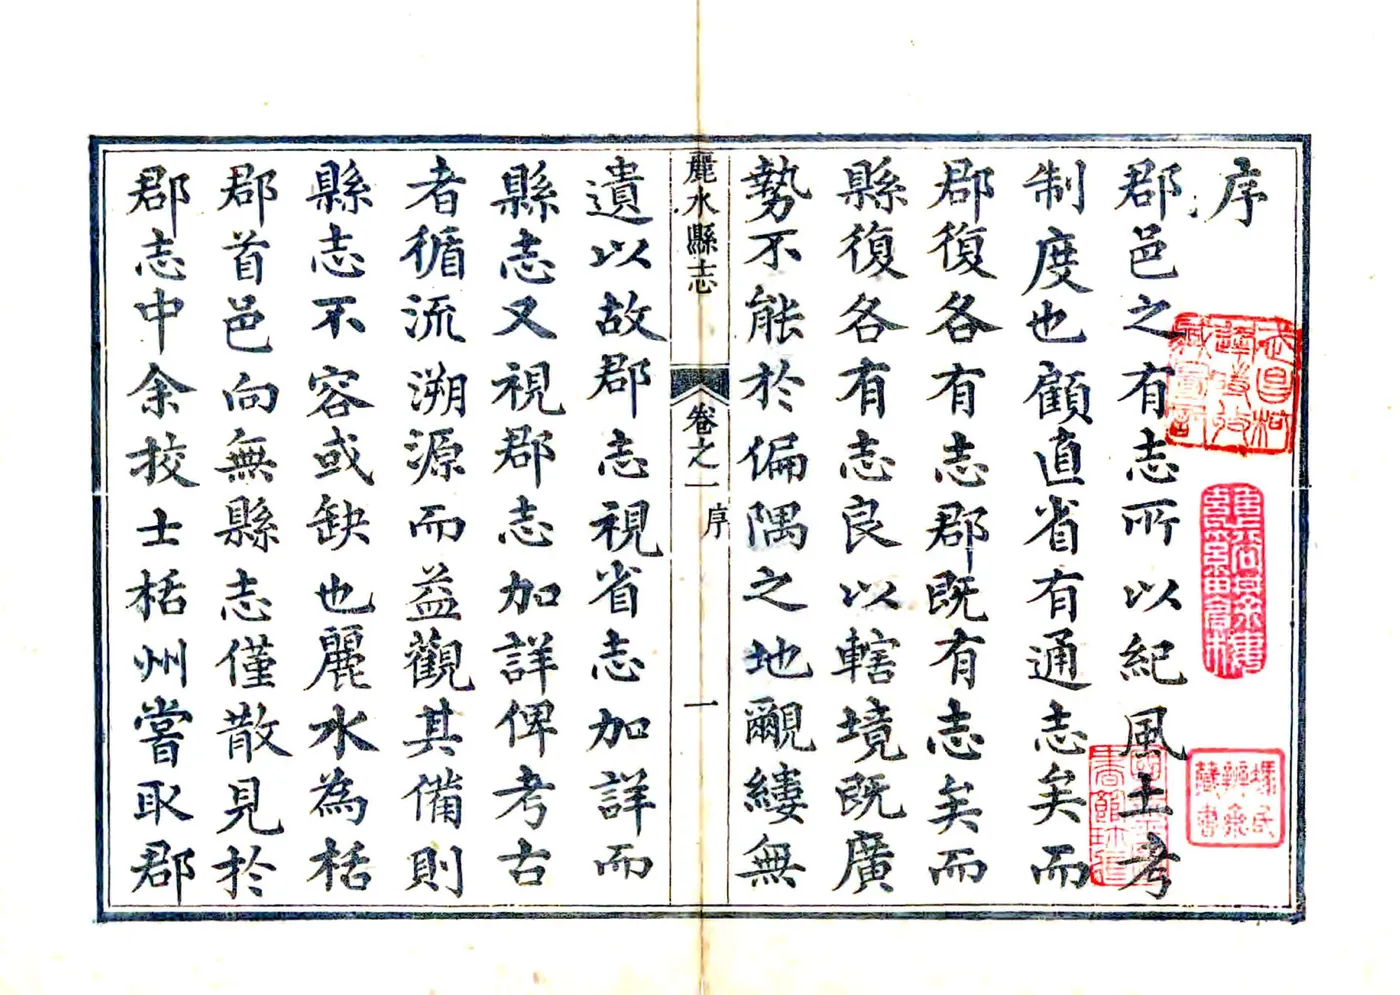 序
郡邑之有志所以紀風土考
制度也顧直省有通志矣而
郡復各有志郡既有志矣而
縣復各有志良以轄境既廣
勢不能於偏隅之地覼縷無
麗水縣志
卷之一
序
一
遺以故郡志視省志加詳而
縣志又視郡志加詳俾考古
者循流溯源而益觀其備則
縣志不容或缺也麗水為栝
郡首邑向無縣志僅散見於
郡志中余挍士栝州嘗取郡
武昌柯
逢時收
藏圖記